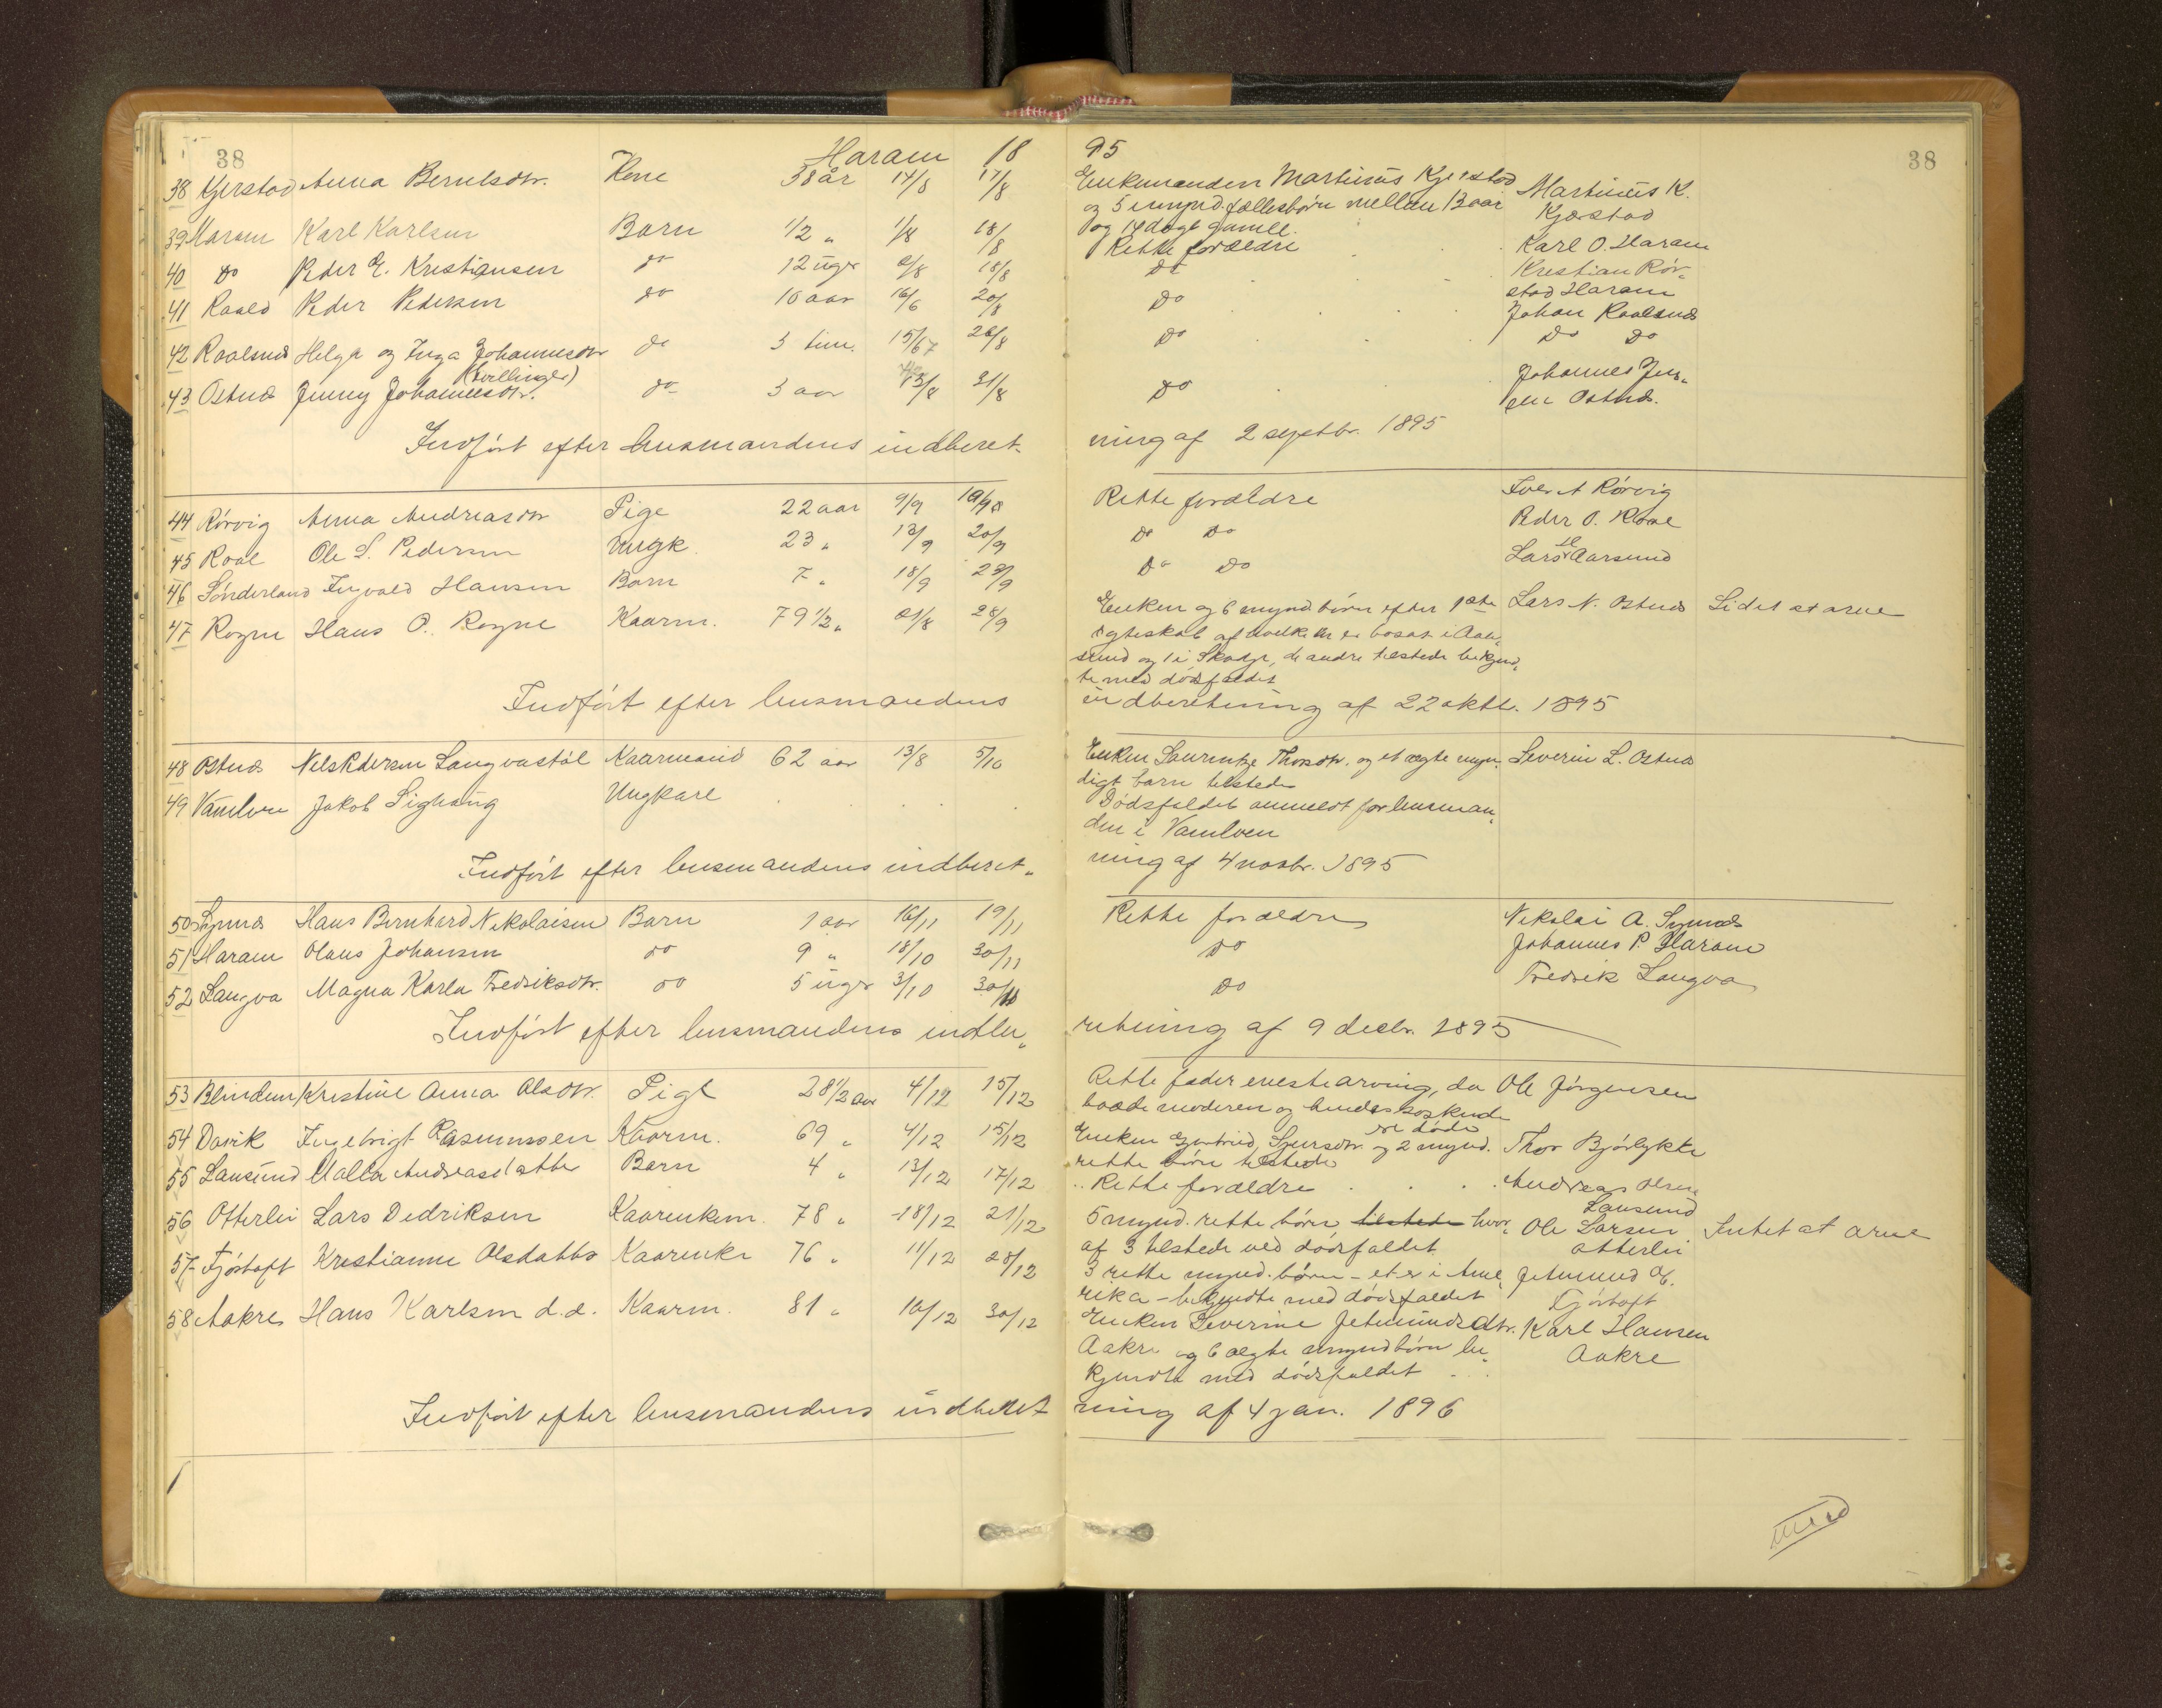 38
Haram 18 95
38
38 Kjerstad Anna Berntsdtr. Kone 38 år 14/8 17/8 Enkemanden Martinus Kjerstad Martinus K.
og 5 umynd. fællesbørn mellem 13 aar Kjerstad
og 14 dage gamle.
39 Haram Karl Karlsen Barn 1/2 " 1/8 18/8 Rette forældre Karl O. Haram
40 Do Peder E. Kristiansen do 12 uger 2/8 18/8 Do Krestian Rør-
stad Haram
41 Roald Peder Pedersen do 10 aar 16/6 20/8 Do Johan Roalsnes
42 Roalsnes Helga og Inga Johannesdtr do 3 tim. 15/67 26/8 Do Do Do
(tvillinger)
43 Østnes Jenny Johannesdtr. do 3 aar 13/8 31/8 Do Johannes Jen-
sen Østnes.
Indført efter lensmandens indberet- ning af 2 septbr. 1895
44 Rørvig Anna Andreasdtr Pige 22 aar 9/9 Rette forældre Iver A Rørvig
45 Roal Ole S. Pedersen Ungk. 23 " 13/9 20/9 Do Do Peder O. Roal
46 Sønderland Ingvald Hansen Barn 7 " 18/9 23/9 Do Do Lars Aarsund
47 Rogne Hans O. Rogne Kaarm. 79 1/2 " 21/8 28/9 Enken og 6 mynd. børn efter 1ste Lars N. Østnes Lidet at arve
ægteskab af hvilke en er bosat i Aale-
sund og 1 i Skodje, de andre tilstede bekjend-
te med dødsfaldet
Indført efter lensmandens indberetning af 22 oktb. 1895
48 Østnes Nils Pedersen Langvastøl Kaarmand 62 aar 13/8 5/10 Enken Laurentze Thorsdtr. og et ægte myn- Severin L. Østnes
digt barn tilstede
49 Vamlven Jakob Sighaug Ungkarl Dødsfaldet anmeldt for lensman-
den i Vamlven
Indført efter lensmandens indberet- ning af 4 novbr. 1895
50 Synnes Hans Bernhard Nikolaisen Barn 1 aar 16/11 19/11 Rette forældre Nikolai A. Synnes
51 Haram Olaus Johansen do 9 " 18/10 30/11 Do Johannes P. Haram
52 Langva Magna Karla Fredriksdtr. do 5 uger 3/10 30/11 Do Fredrik Langva
Indført efter lensmandens indbe- retning af 9 decbr. 1895
53 Blindem Kristine Anna Olsdtr. Pige 28 1/2 aar 4/12 15/12 Rette fader enestearving, da Ole Jørgensen
baade moderen og hendes søskende
er døde
54 Davik Ingebrigt Rasmussen Kaarm. 69 " 4/12 15/12 Enken Gjertrud Sjursdtr. og 2 mynd. Thor Bjørlykke
rette børn tilstede
55 Lausund Malla Andreasdatter Barn 4 " 13/12 17/12 Rette forældre Andreas Olsen
Lausund
56 Otterlei Lars Dedriksen Kaarenkem. 78 " 18/12 21/12 5 mynd. rette børn tilstede hvor- Ole Larsen Intet at arve
af 3 tilstede ved dødsfaldet Otterlei
57 Fjørtoft Krestianne Olsdatter Kaarenke 76 " 11/12 28/12 3 rette mynd. børn – et er i Ame- Jetmund E.
rika – bekjendte med dødsfaldet Fjørtoft
58 Aakre Hans Karlsen d.e. Kaarm. 81 " 10/12 30/12 Enken Severine Jetmundsdtr. Karl Hansen
Aakre og 6 ægte mynd børn be- Aakre
kjendte med dødsfaldet
Indført efter lensmandens indberet ning af 4 jan. 1896